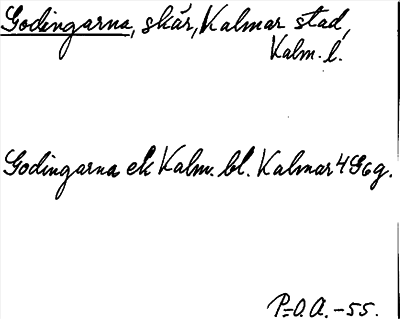 Godingarna, skär, Kalmar stad,
Kalm. l.
Godingarna ek Kalm. bl. Kalmar 4G6g.
P=O.A. -55.